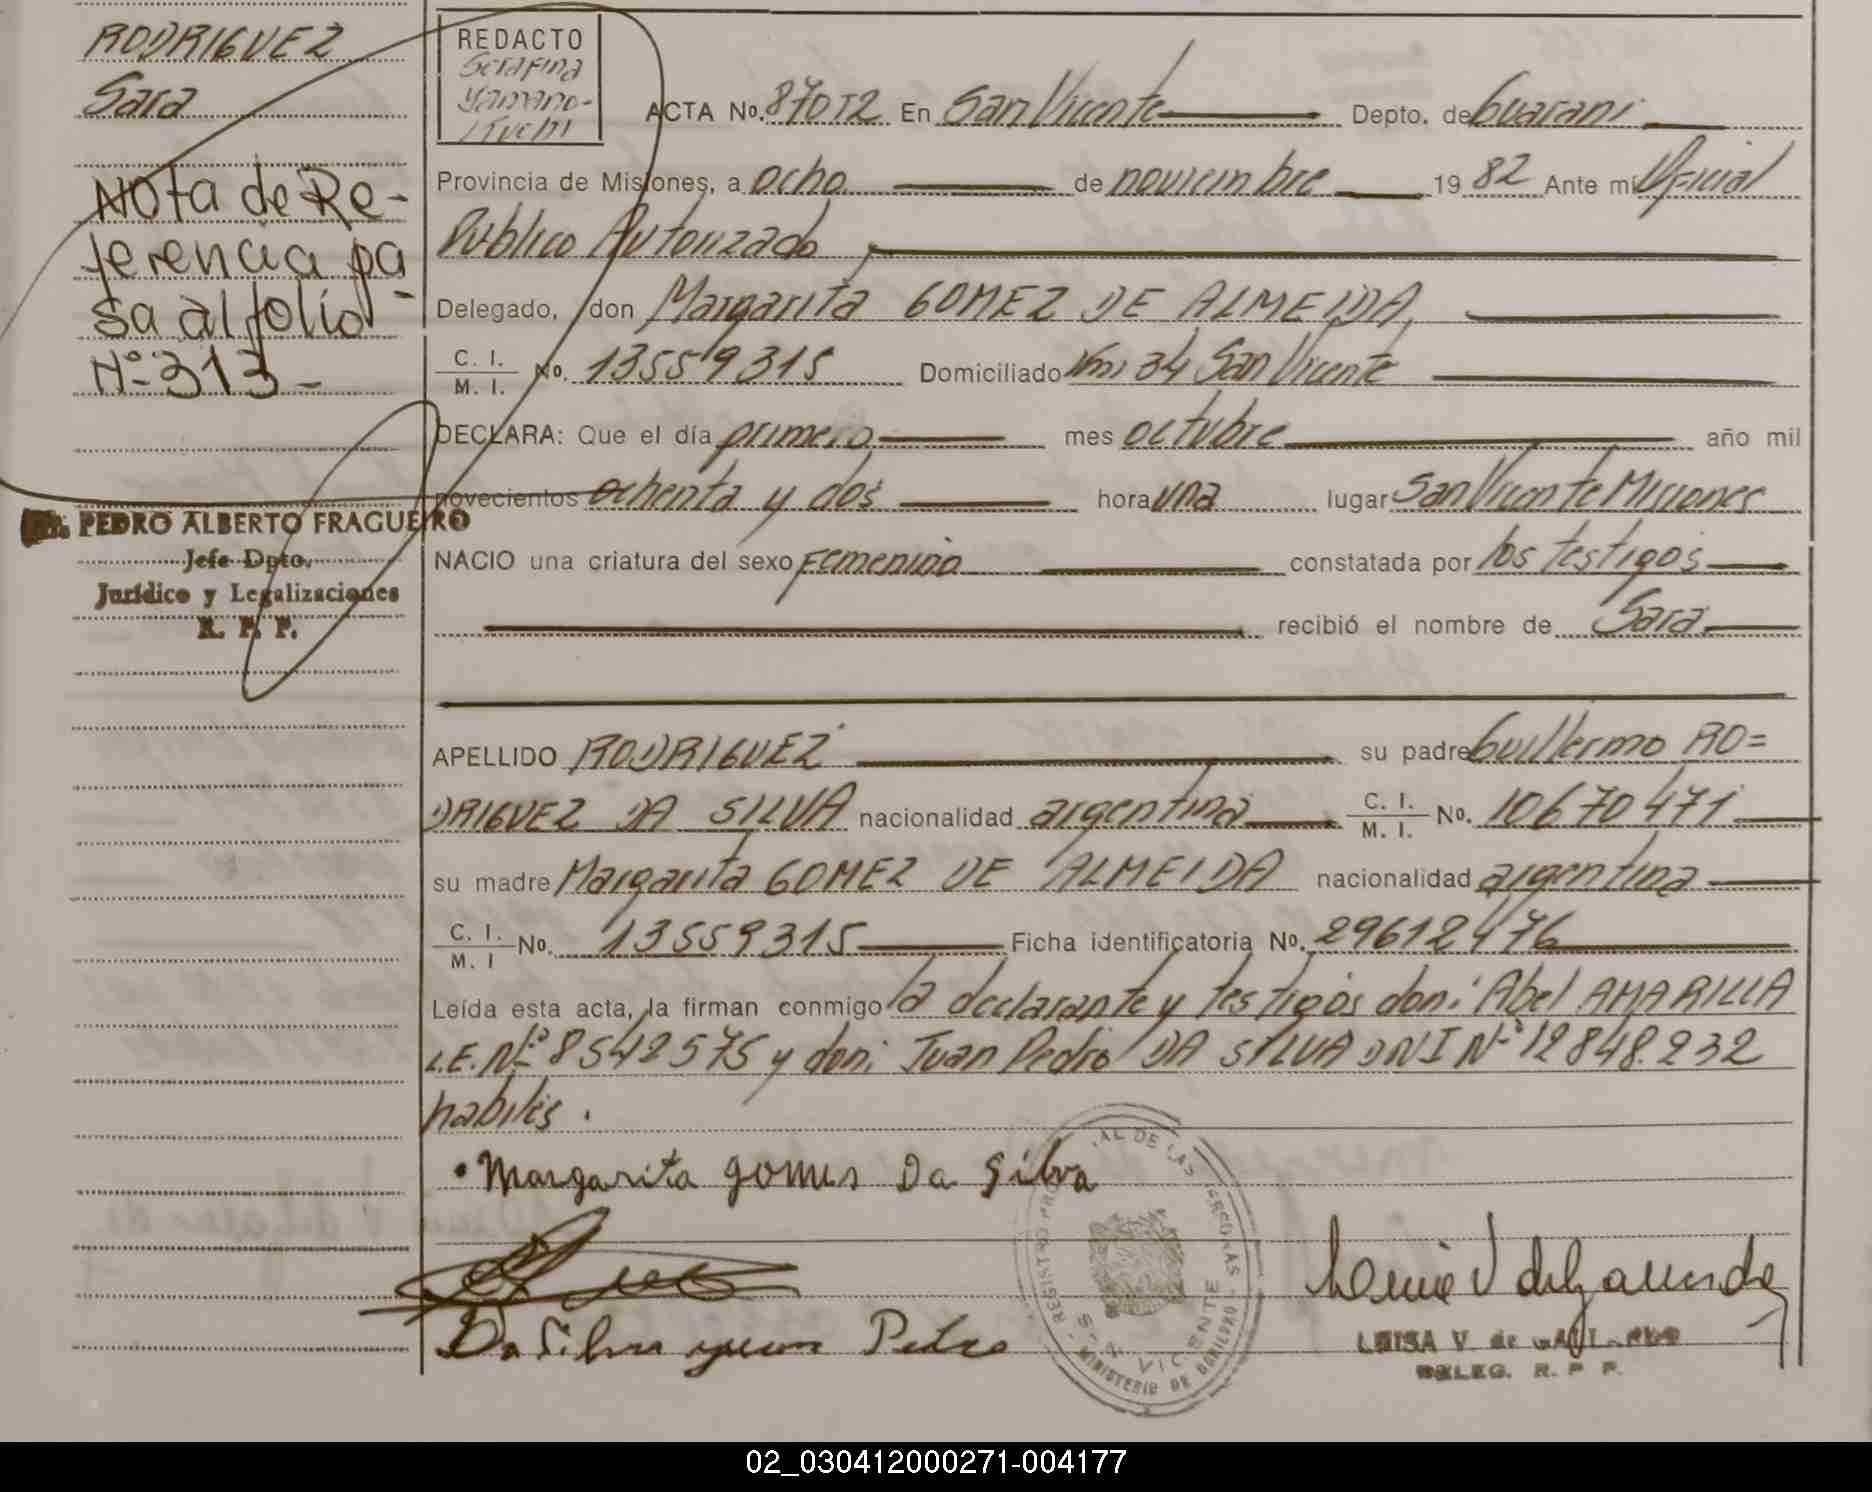 RODRIGUEZ
Sara
Nota de Re-
ferencia pa
sa al folio
Nº 313-
PEDRO ALBERTO FRAGUEIRO
Jefe Dpto.
Jurídico y Legalizaciones
R. P. P.
REDACTO
Serafina
ACTA No. 87012 En San Vicente Depto. de Guarani
Provincia de Misiones, a ocho de noviembre 1982 Ante mi Oficial
Público Autorizado
Delegado, don Margarita GOMEZ DE ALMEIDA,
C. I. / M. I. No. 13559315 Domiciliado Km 34 San Vicente
DECLARA: Que el día primero mes octubre año mil
novecientos ochenta y dos hora una lugar San Vicente Misiones
NACIO una criatura del sexo Femenino constatada por los testigos
recibió el nombre de Sara
APELLIDO RODRIGUEZ su padre Guillermo RO=
DRIGUEZ DA SILVA nacionalidad argentina C. I. / M. I. No. 10670471
su madre Margarita GOMEZ DE ALMEIDA nacionalidad argentina
C. I. / M. I No. 13559315 Ficha identificatoria No. 29612476
Leída esta acta, la firman conmigo la declarante y testigos don: Abel AMARILLA
L.E. Nº 8542575 y don: Juan Pedro DA SILVA DNI Nº 12848.232
habiles.
Margarita gomes Da Silva
Da Silva Pedro
REGISTRO DE LAS PERSONAS
SAN VICENTE
MINISTERIO DE GOBIERNO
LUISA V. de
DELEG. R. P. P.
02_030412000271-004177